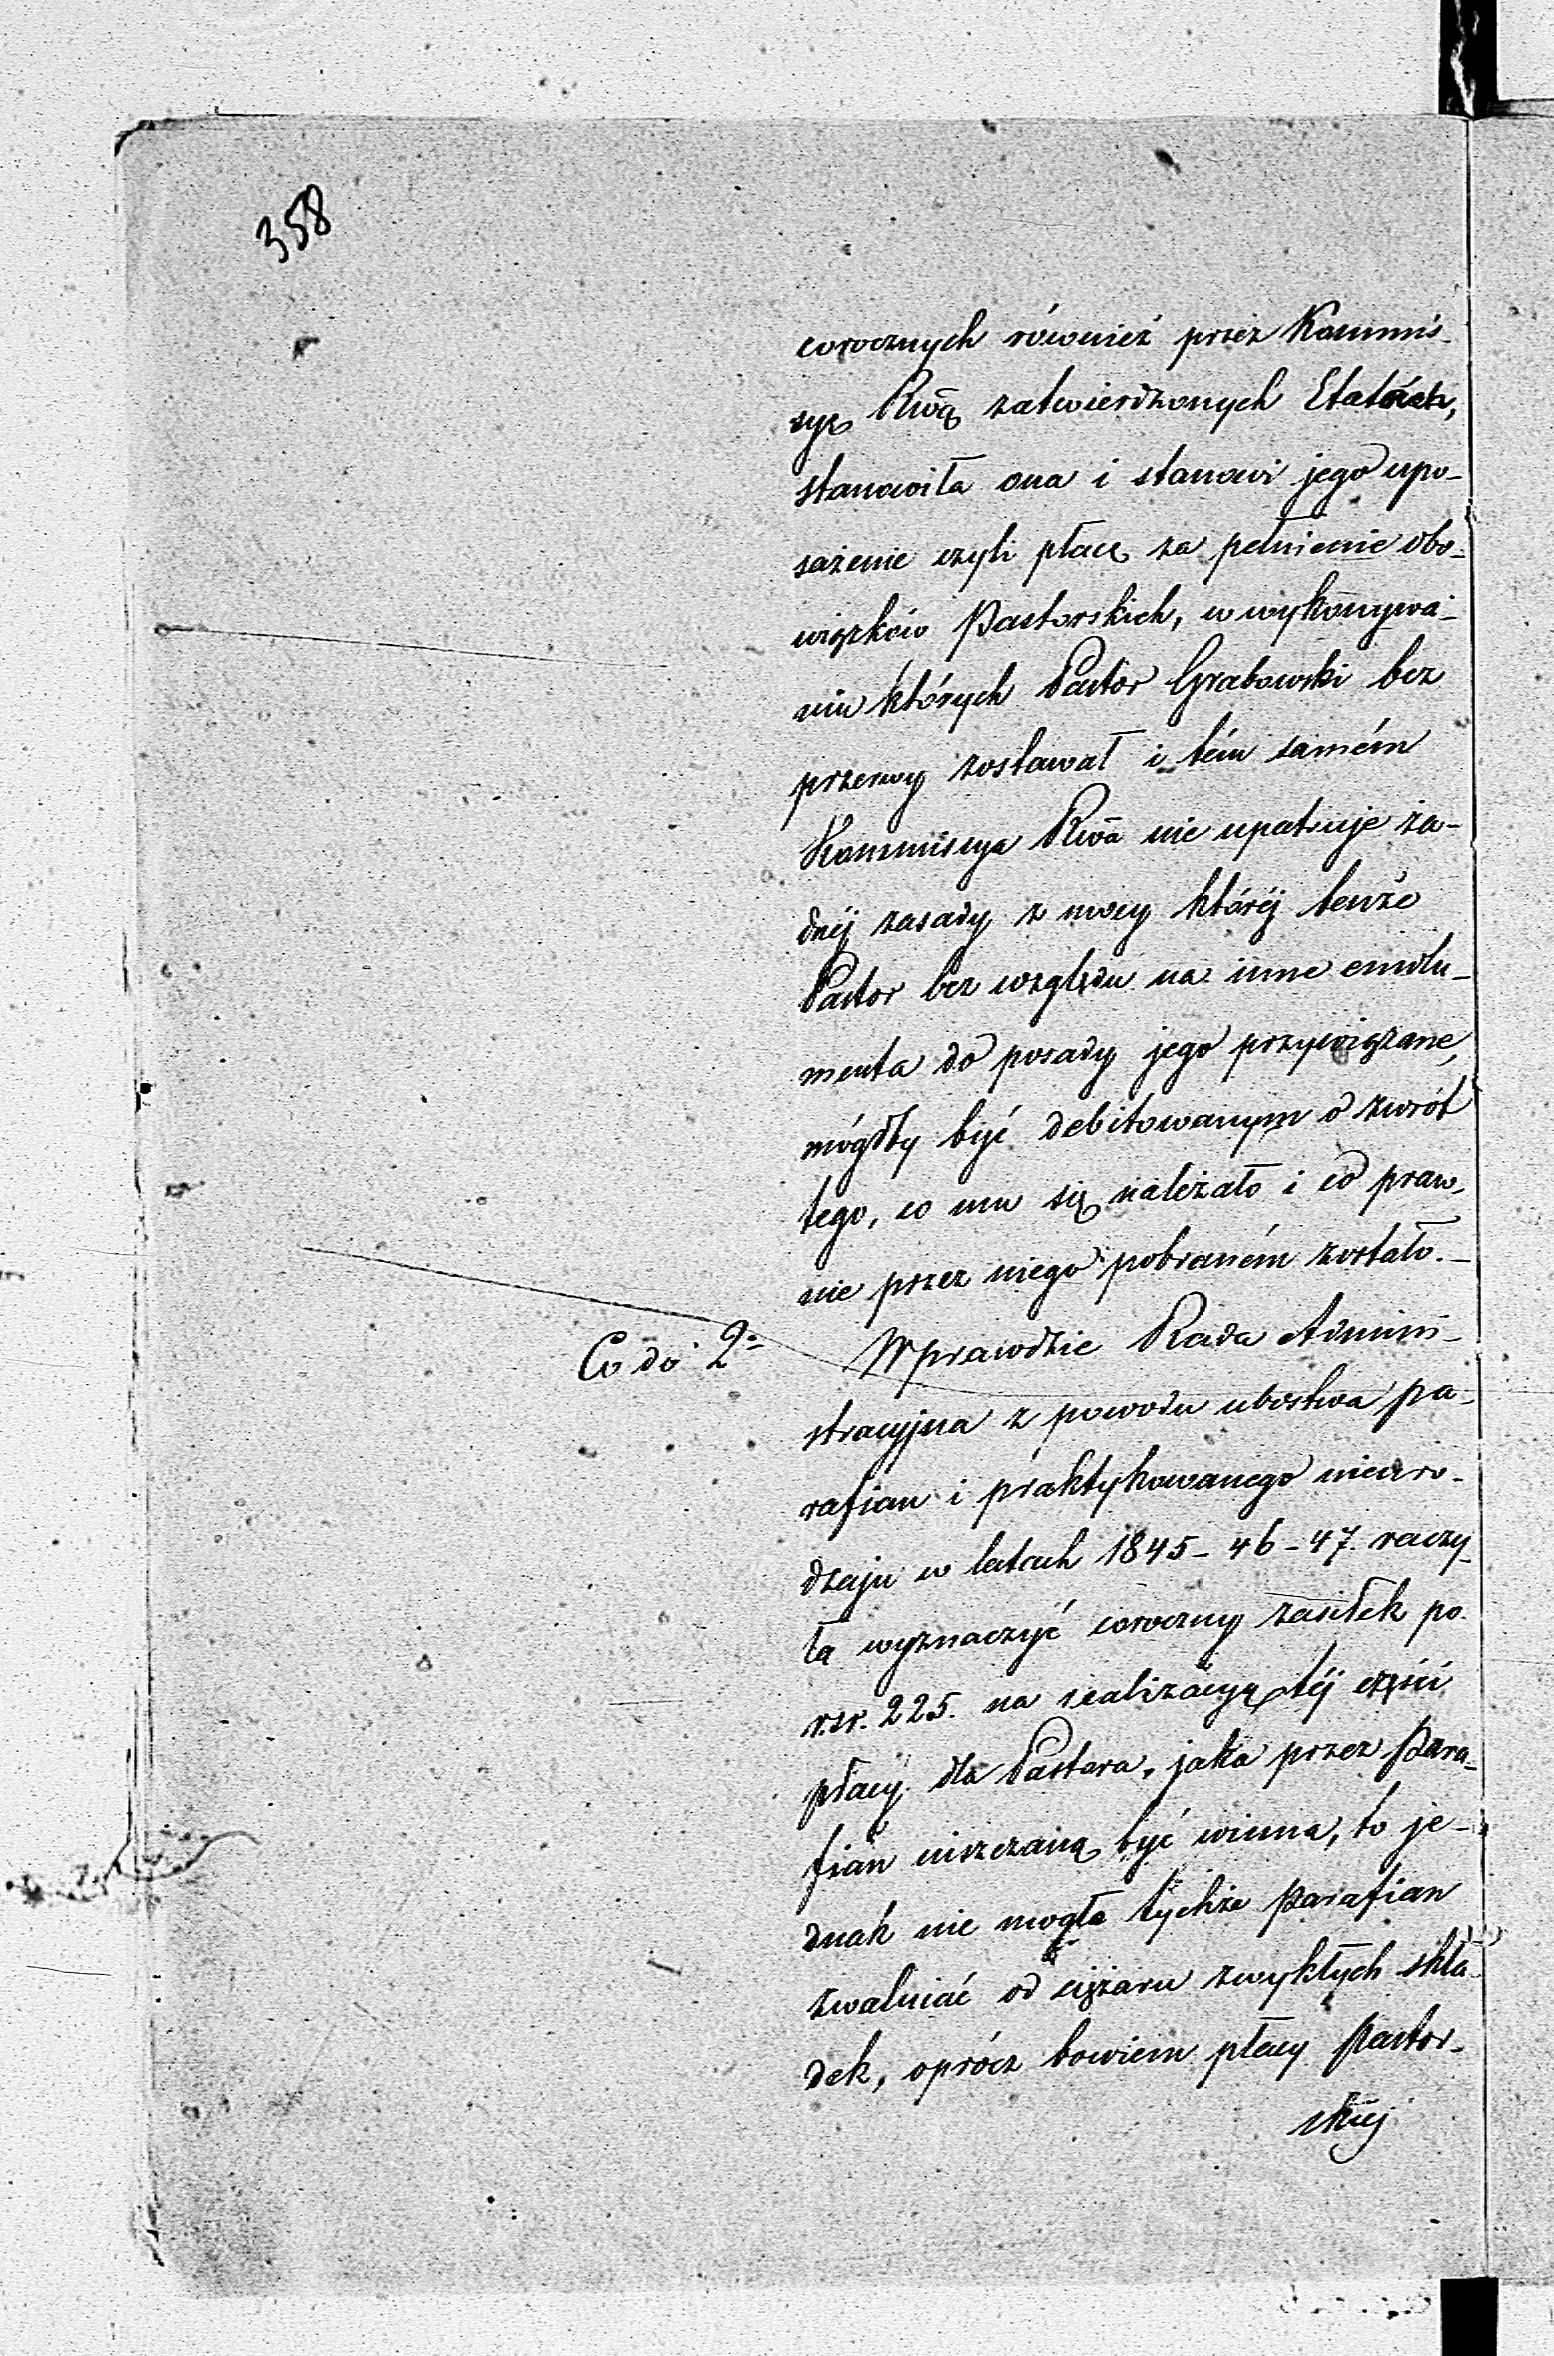 358
corocznych również przez Kommis-
syę Rwą zatwierdzonych Etatach,
stanowiła ona i stanowi jego upo-
sażenie czyli płacę za pełnienie obo-
wiązków Pastorskich, w wykonywa-
niu których Pastor Grabowski bez
przerwy zostawał i tém samém
Kommissya Rwa nie upatruje ża-
dnéj zasady z mocy któréj tenże
Pastor bez względu na inne emolu-
menta do posady jego przywiązane,
mógłby być debitowanym o zwrót
tego, co mu się należało i co praw-
nie przez niego pobraném zostało.—
Co do 2o Wprawdzie Rada Admini-
stracyjna z powodu ubóstwa pa-
rafian i praktykowanego nieuro-
dzaju w latach 1845-46-47. raczy-
ła wyznaczyć coroczny zasiłek po
r.sr. 225. na realizacyę téj części
płacy dla Pastora, jaka przez Para-
fian uiszczaną być winna, to je-
dnak nie mogła tychże Parafian
zwalniać od ciężaru zwykłych skła-
dek, oprócz bowiem płacy Pastor-
skiéj